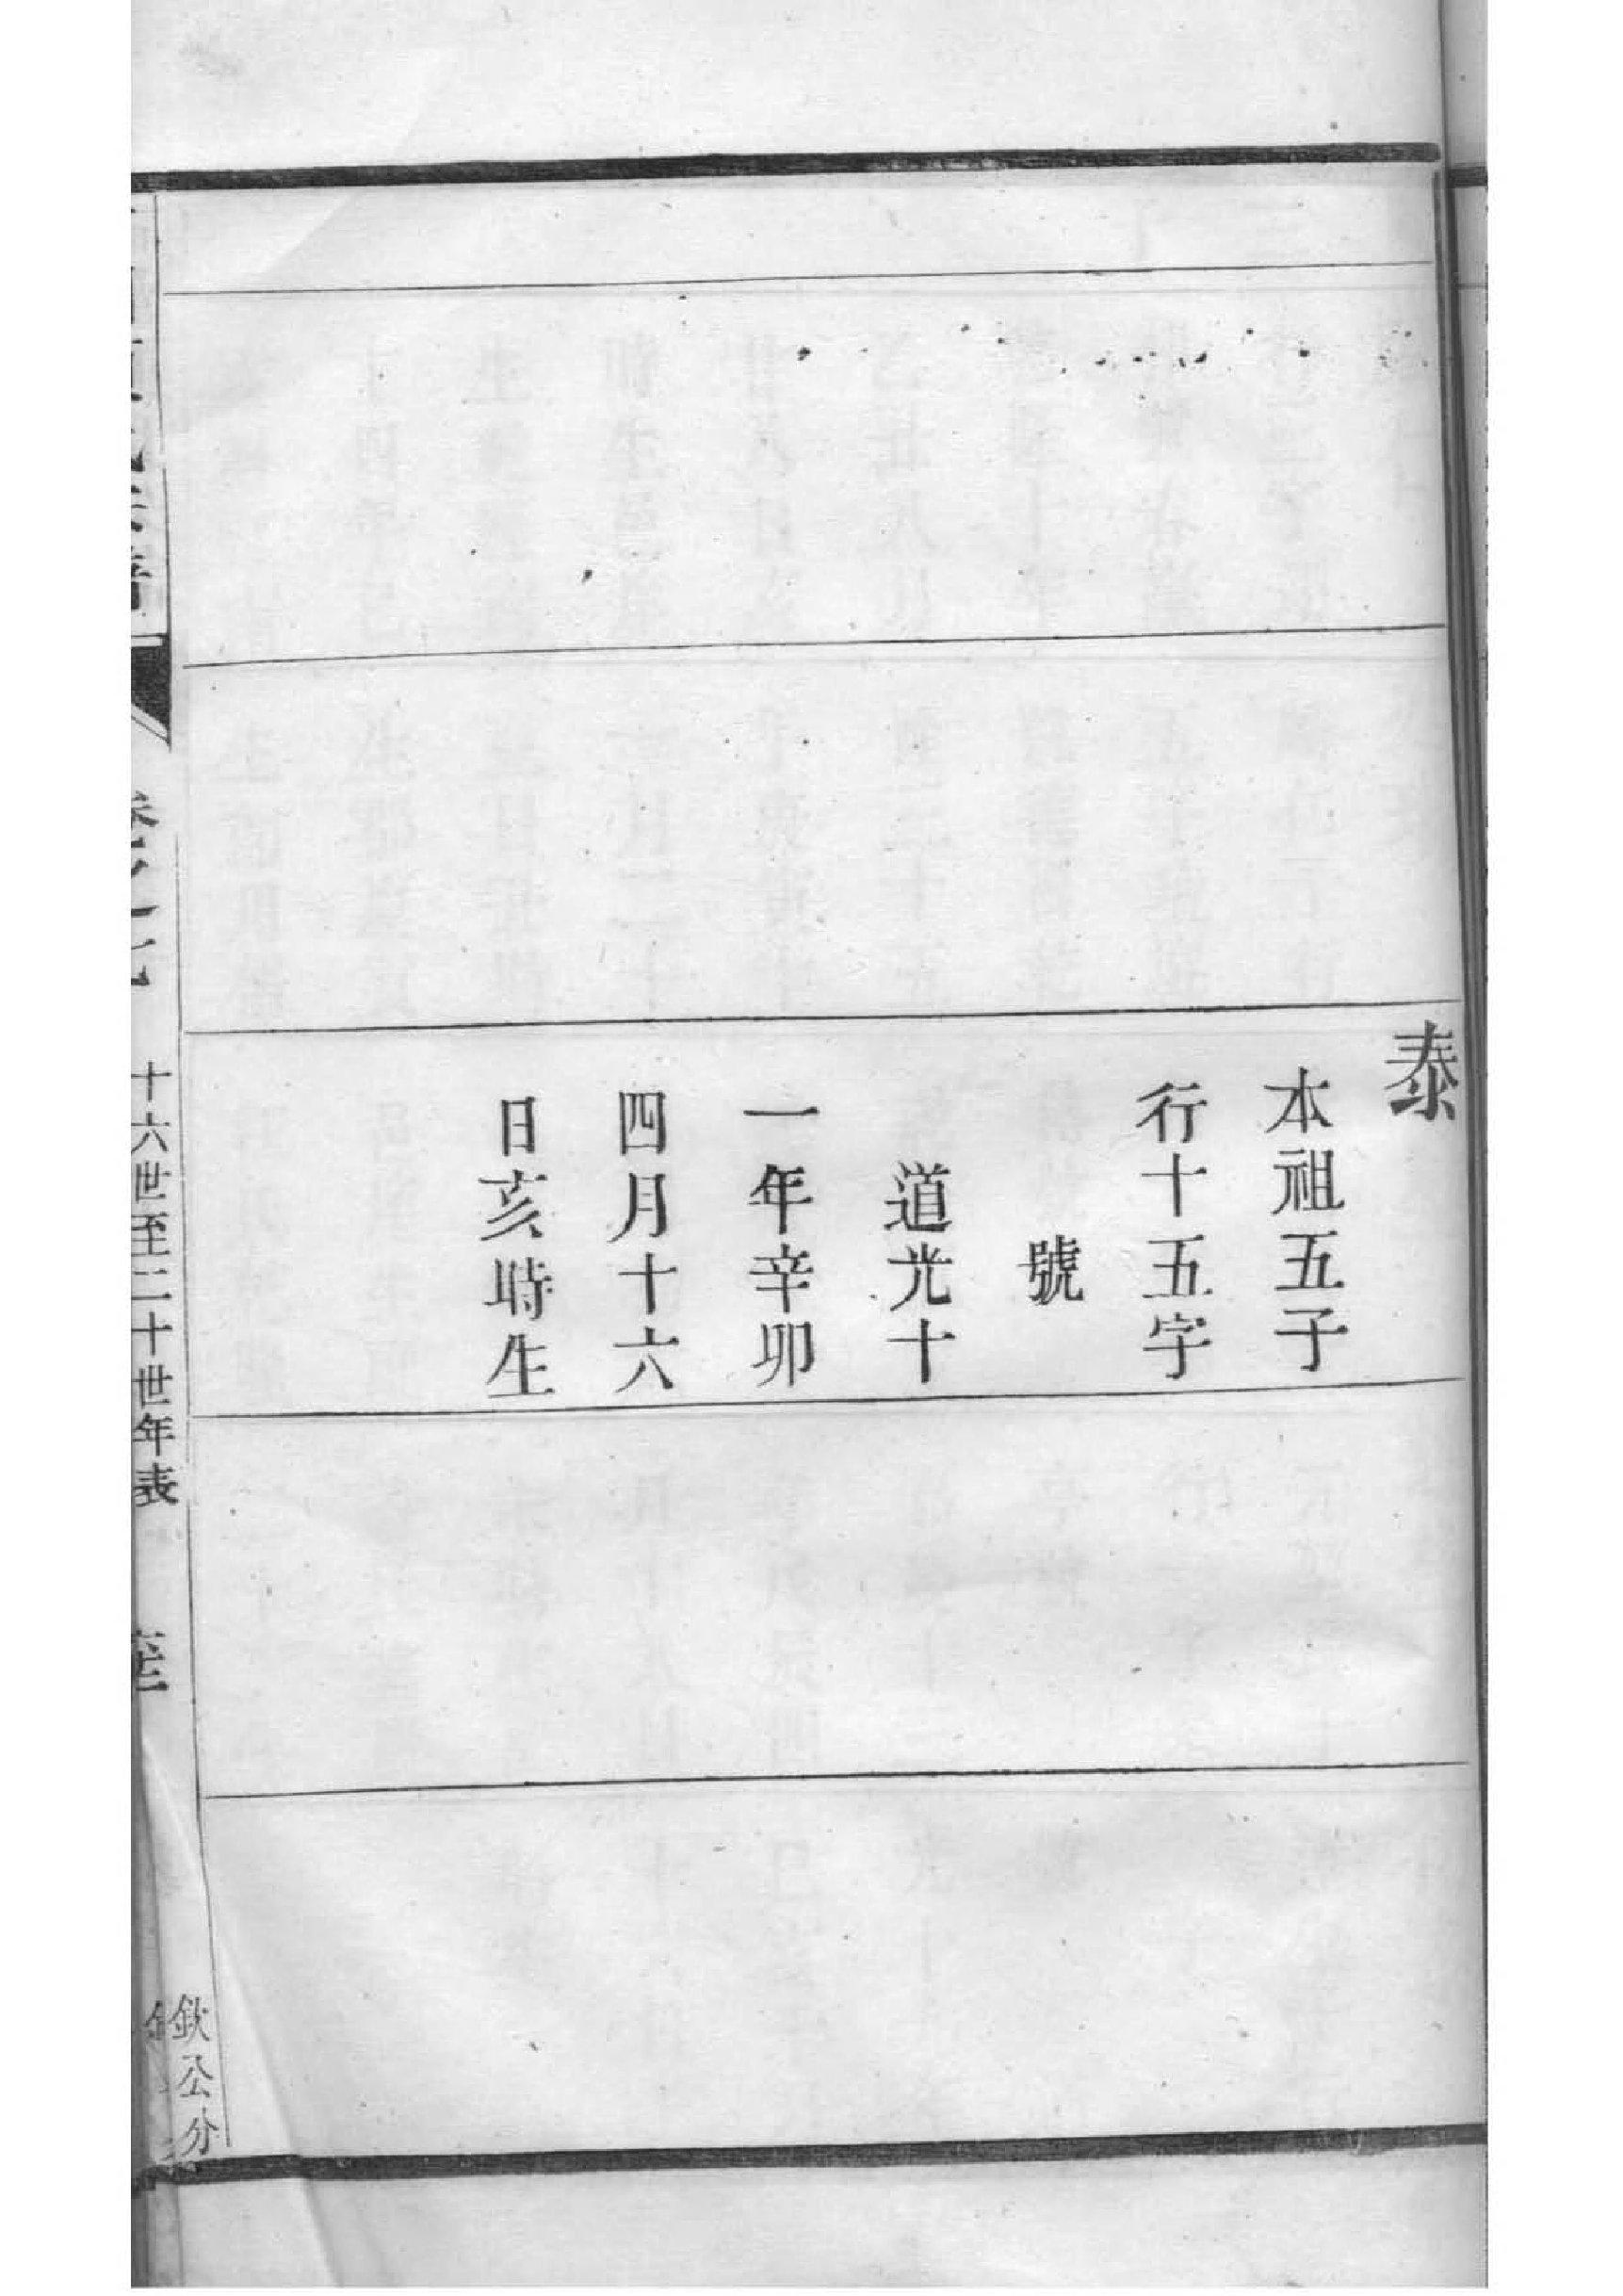 泰
本祖五子
行十五字
號
道光十
一年辛卯
四月十六
日亥時生
十六世至二十世年表
欽公分